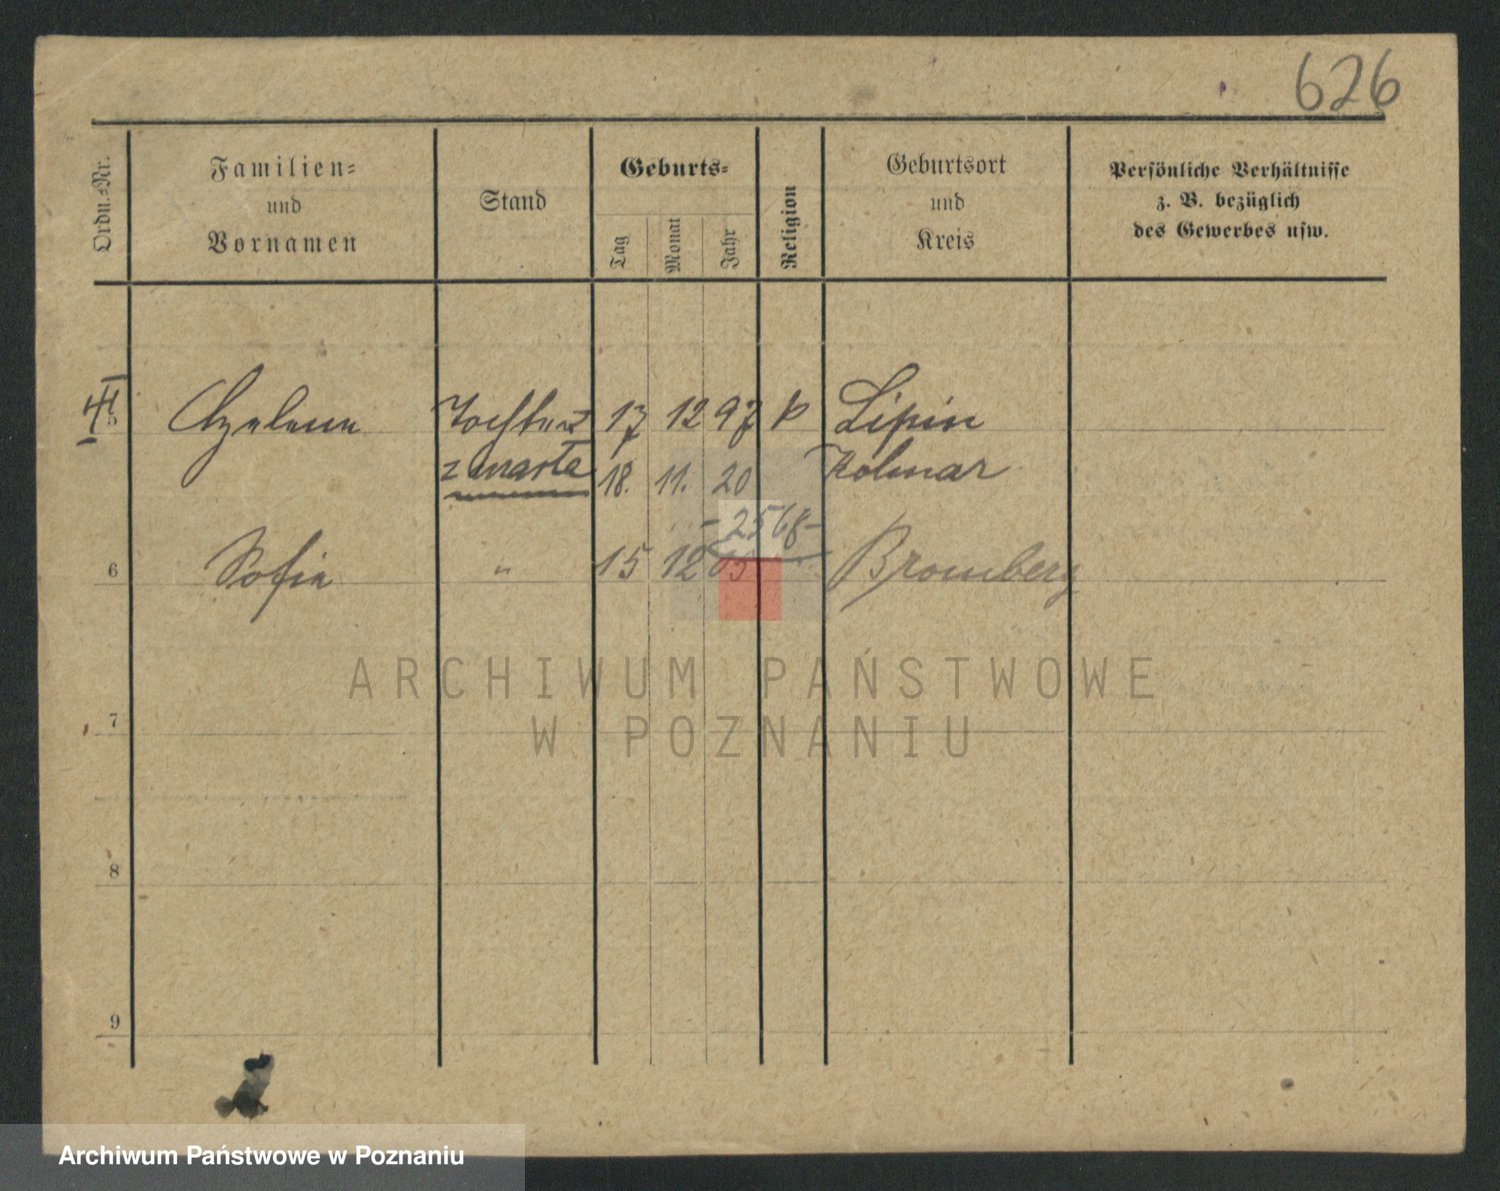 626
Ordn.-Nr.
Familien-
und
Vornamen
Stand
Geburts-
Tag
Monat
Jahr
Religion
Geburtsort
und
Kreis
Persönliche Verhältnisse
z. B. bezüglich
des Gewerbes usw.
5 Tochter 17 12 97 k Lipin
zmarła 18. 11. 20 Kolmar
-2568-
6 Sofia " 15 12 03 Bromberg
ARCHIWUM PAŃSTWOWE
W POZNANIU
7
8
9
Archiwum Państwowe w Poznaniu